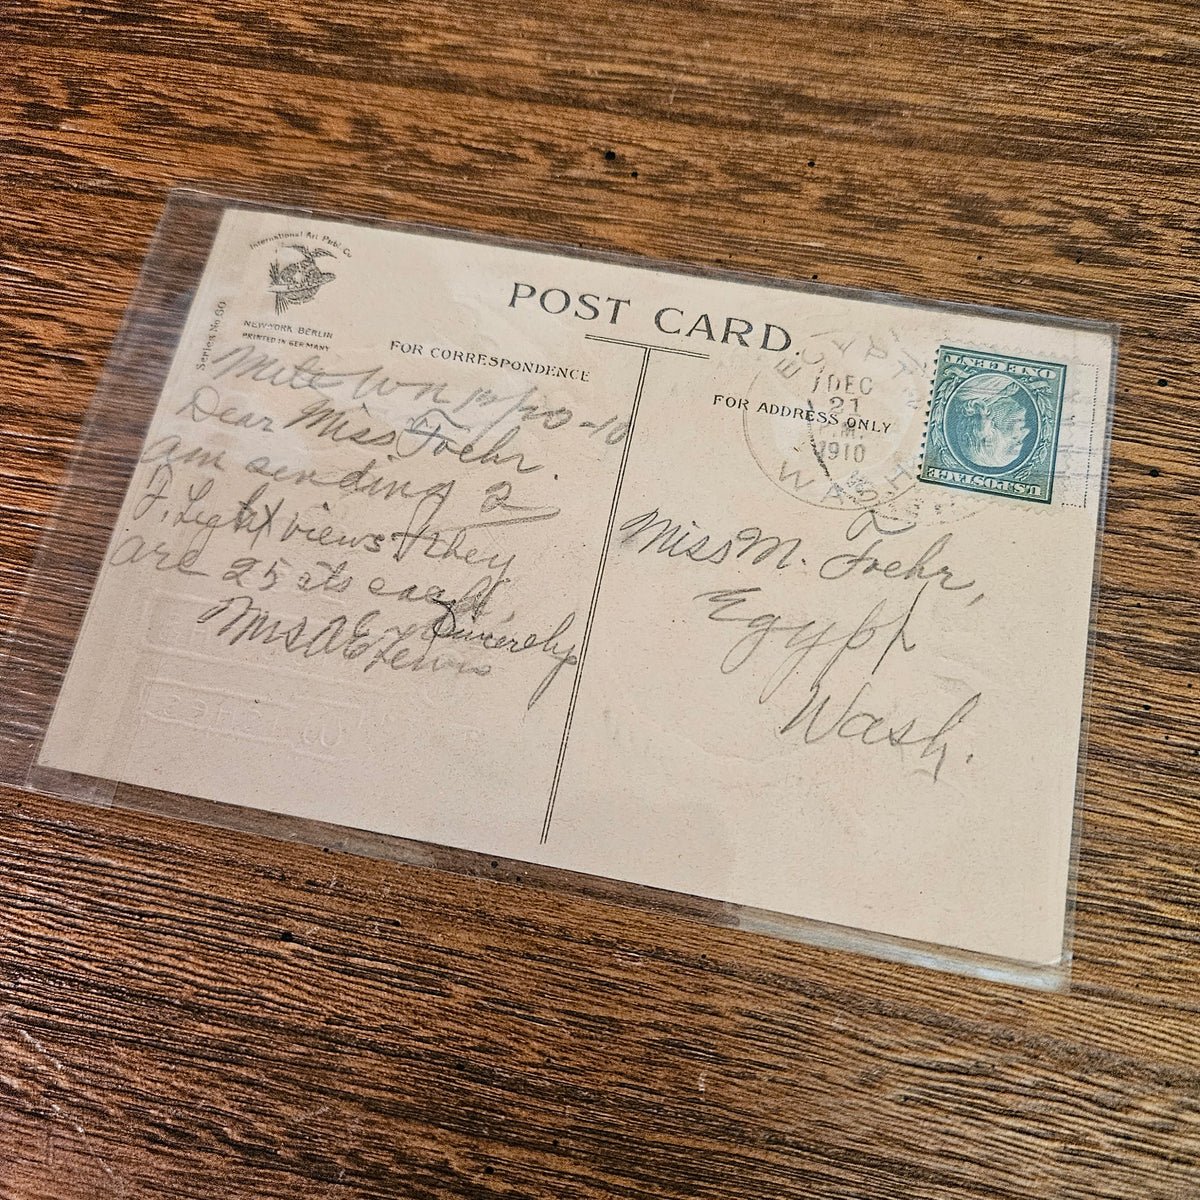 International Art Publ. Co.
NEW YORK BERLIN
PRINTED IN GERMANY
Series No. 60
POST CARD.
FOR CORRESPONDENCE
FOR ADDRESS ONLY
EGYPT
DEC
21
1910
WASH.
ONE CENT
U.S. POSTAGE
WN 12/20-10
Dear Miss Foehr.
am sending 2
F. Light views they
are 25 cts each,
Sincerely
Mrs A E Lewis
Miss M. Foehr,
Egypt
Wash.